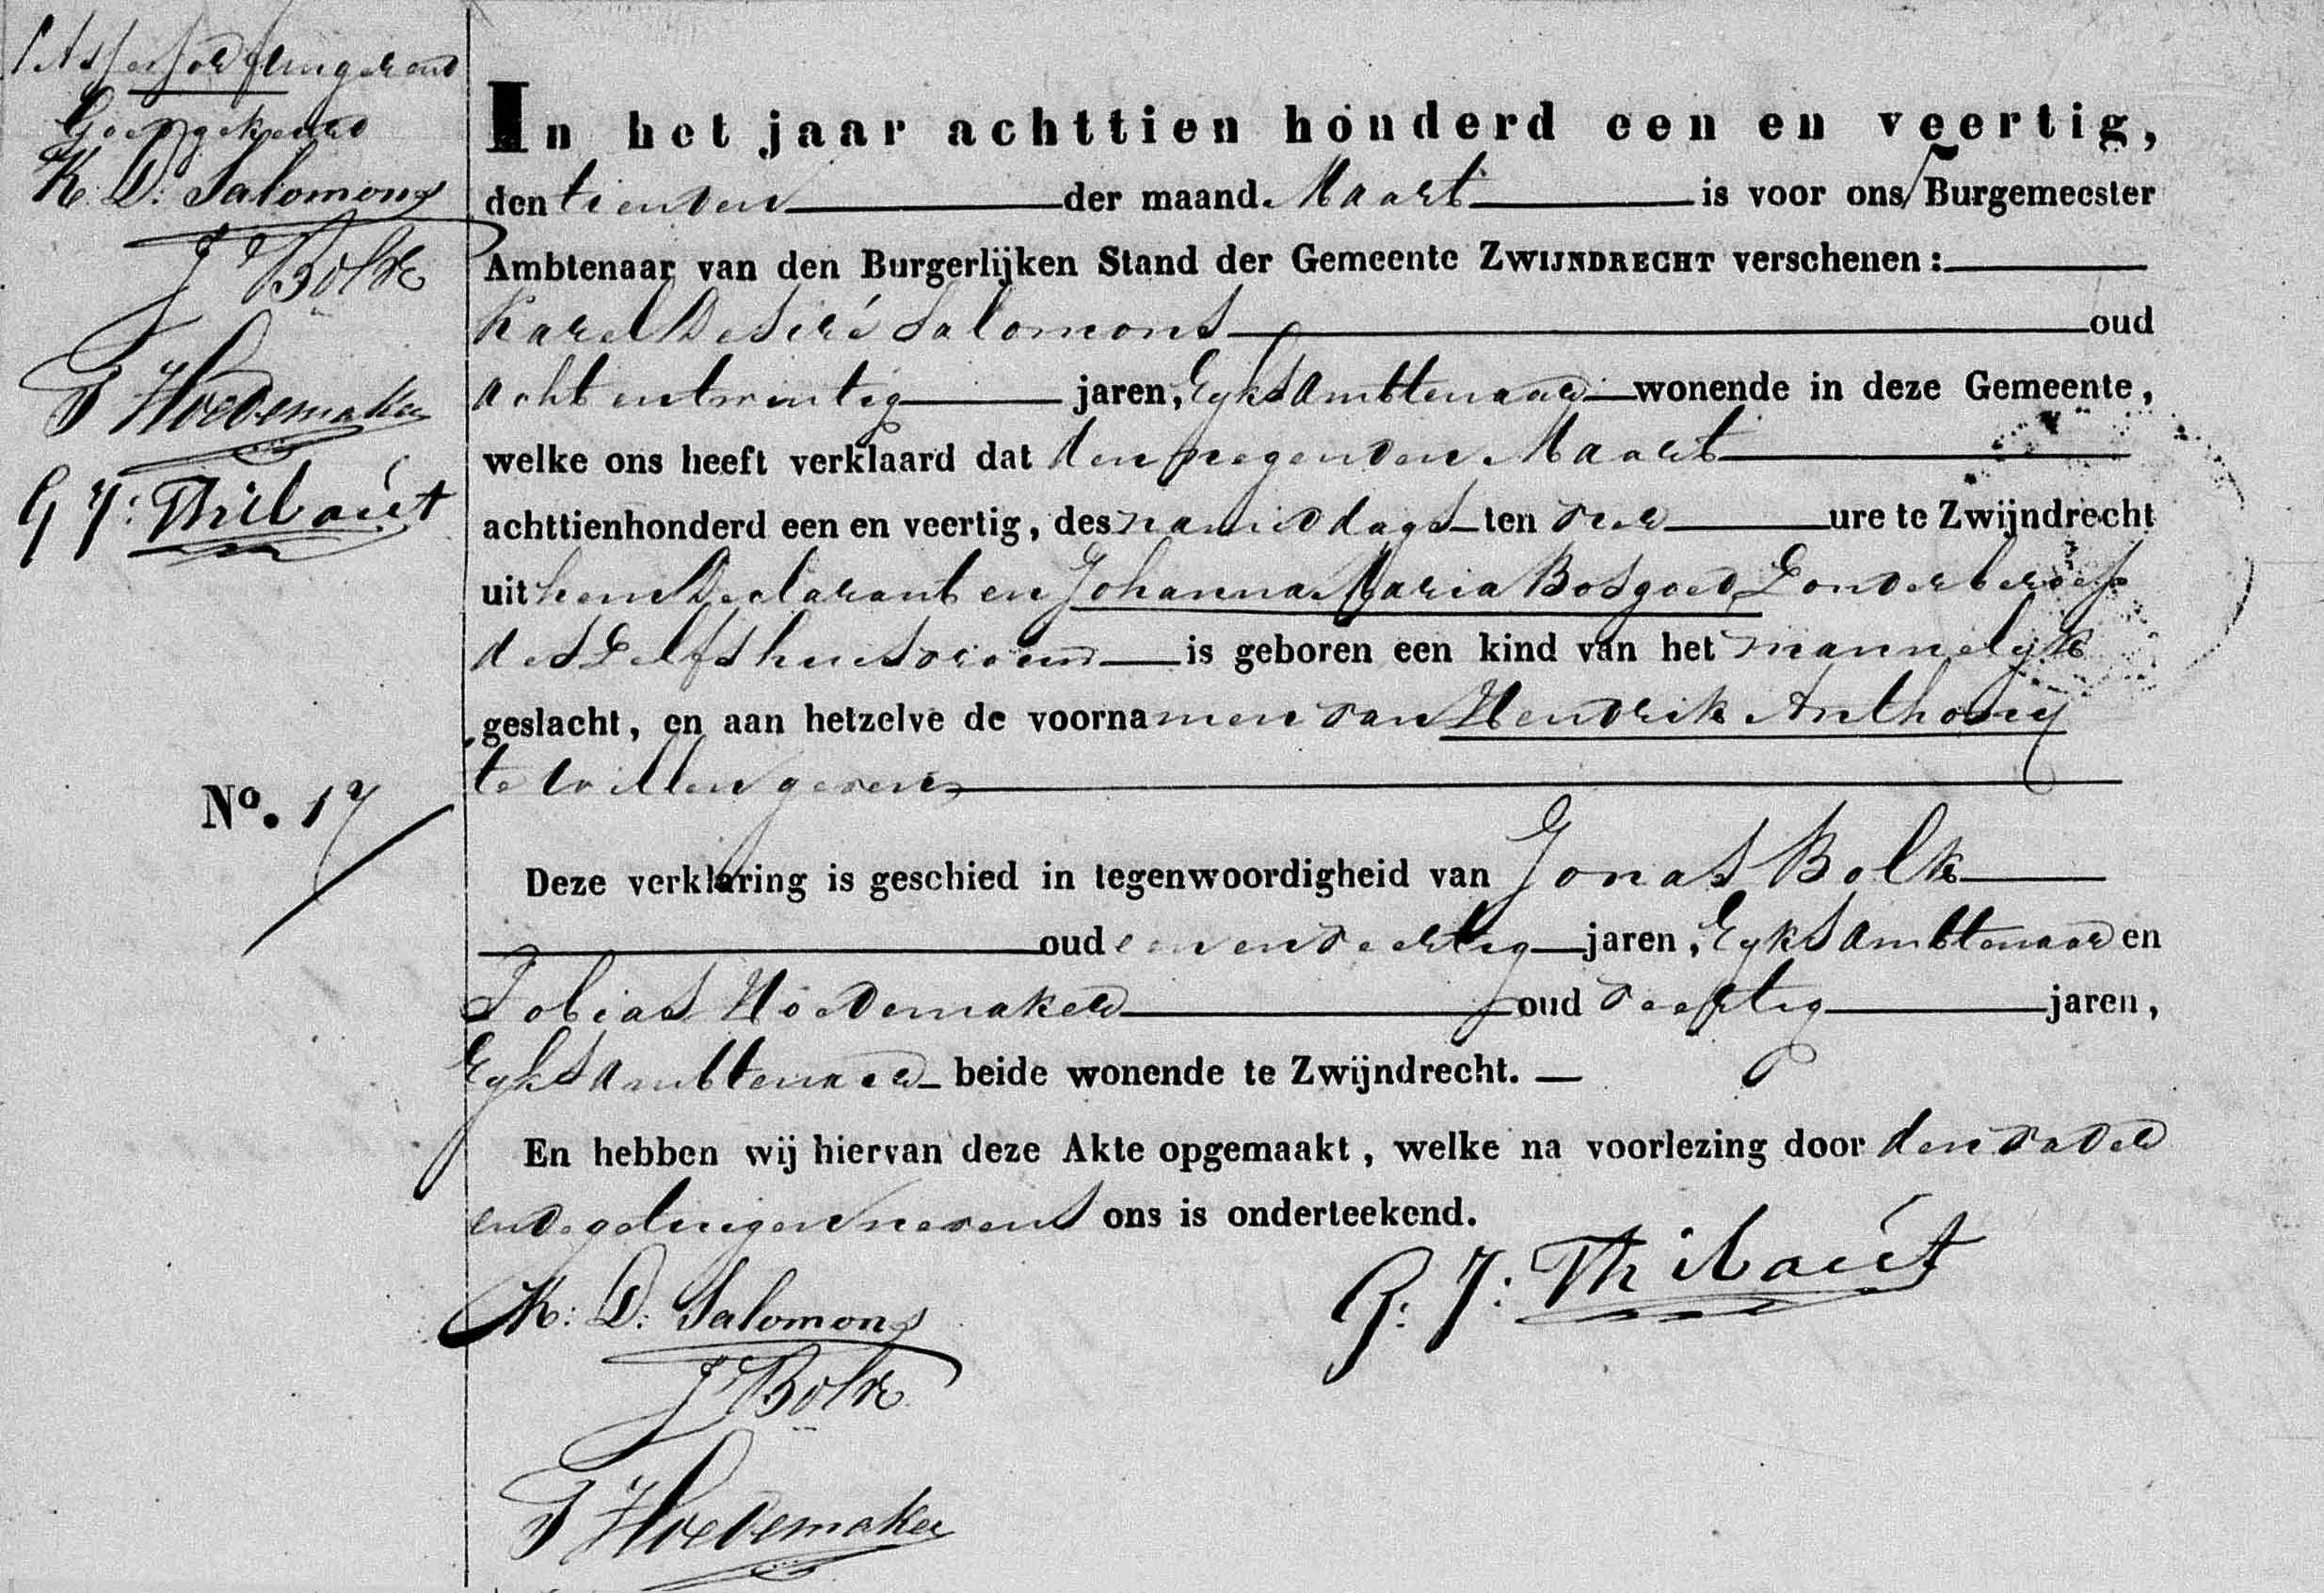 Assessor fungerend
Goedgekeurd
K. D. Salomons
J Bolk
T Hoedemaker
G J: Thibaút
No. 17
In het jaar achttien honderd een en veertig,
den tienden der maand Maart is voor ons Burgemeester
Ambtenaar van den Burgerlijken Stand der Gemeente ZWIJNDRECHT verschenen:
Karel Desiré Salomons oud
acht en twintig jaren, Ryks Ambtenaar wonende in deze Gemeente,
welke ons heeft verklaard dat den negenden Maart
achttienhonderd een en veertig, des namiddags ten vier ure te Zwijndrecht
uit hem Declarant en Johanna Maria Bosgoed Zonder beroep
deszelfs huisvrouw is geboren een kind van het mannelyk
geslacht, en aan hetzelve de voornamen van Hendrik Anthony
te willen geven
Deze verklaring is geschied in tegenwoordigheid van Jonas Bolk
oud een en veertig jaren, Ryks Ambtenaar en
Tobias Hoedemaker oud veertig jaren,
Ryks Ambtenaar beide wonende te Zwijndrecht.
En hebben wij hiervan deze Akte opgemaakt, welke na voorlezing door den vader
en de getuigen nevens ons is onderteekend.
K: D: Salomons
G. J: Thibaút
J Bolk
T Hoedemaker